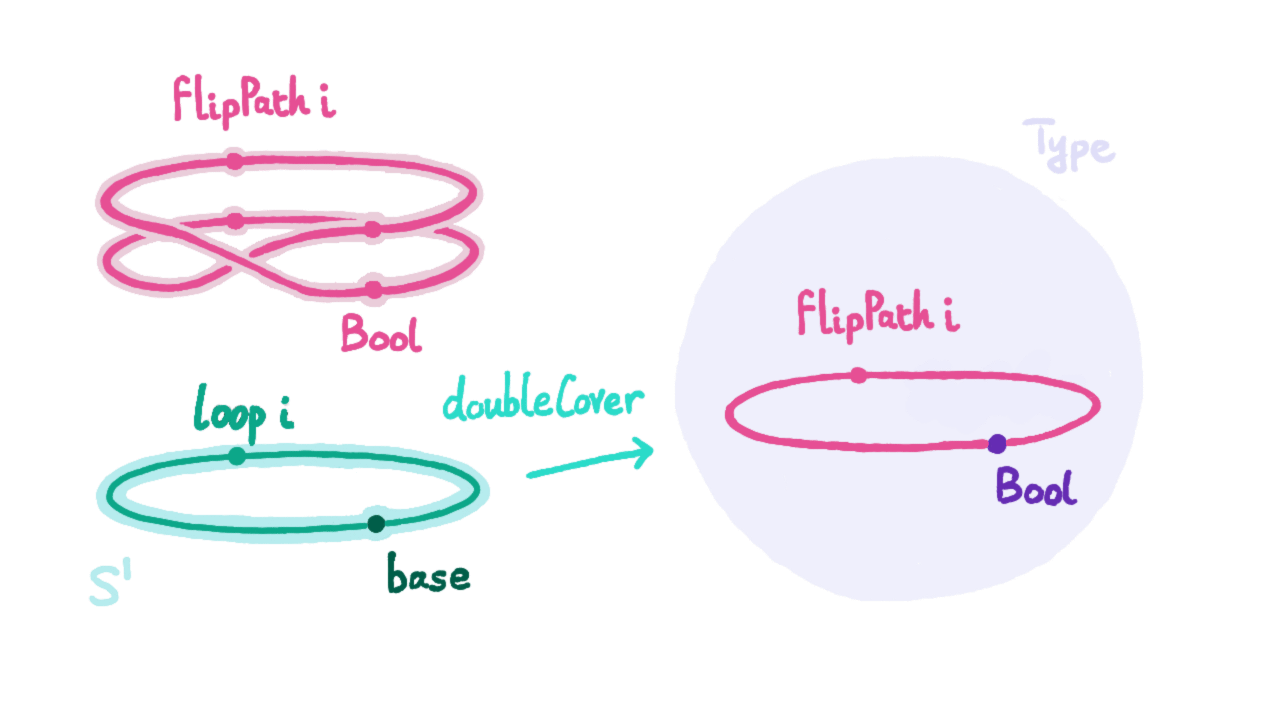 flipPath i
Bool
loop i
base
S¹
doubleCover
Type
flipPath i
Bool